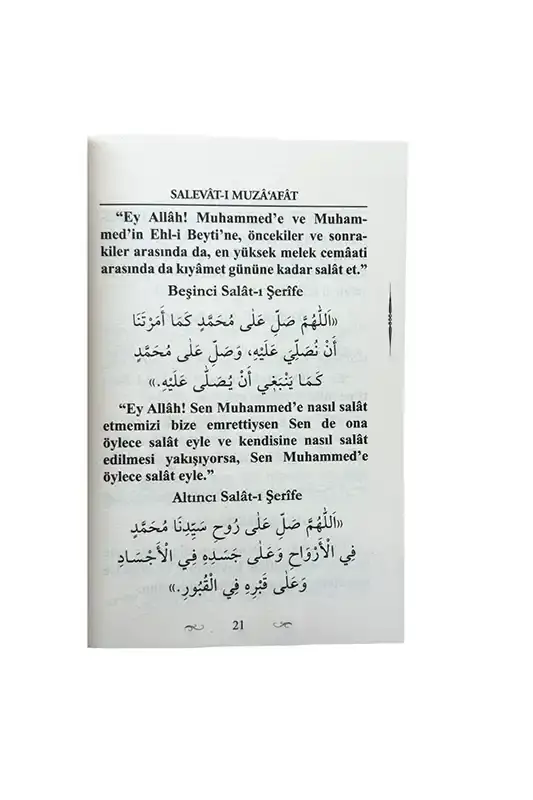 SALEVÂT-I MUZÂ‘AFÂT
“Ey Allâh! Muhammed’e ve Muham-
med’in Ehl-i Beyti’ne, öncekiler ve sonra-
kiler arasında da, en yüksek melek cemâati
arasında da kıyâmet gününe kadar salât et.”
Beşinci Salât-ı Şerîfe
«اَللّٰهُمَّ صَلِّ عَلٰى مُحَمَّدٍ كَمَا أَمَرْتَنَا
أَنْ نُصَلِّيَ عَلَيْهِ، وَصَلِّ عَلٰى مُحَمَّدٍ
كَمَا يَنْبَغِي أَنْ يُصَلّٰى عَلَيْهِ.»
“Ey Allâh! Sen Muhammed’e nasıl salât
etmemizi bize emrettiysen Sen de ona
öylece salât eyle ve kendisine nasıl salât
edilmesi yakışıyorsa, Sen Muhammed’e
öylece salât eyle.”
Altıncı Salât-ı Şerîfe
«اَللّٰهُمَّ صَلِّ عَلٰى رُوحِ سَيِّدِنَا مُحَمَّدٍ
فِي الْأَرْوَاحِ وَعَلٰى جَسَدِهِ فِي الْأَجْسَادِ
وَعَلٰى قَبْرِهِ فِي الْقُبُورِ.»
21